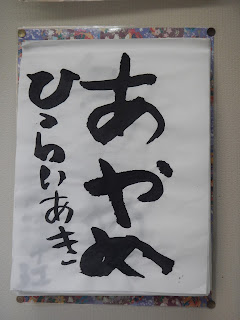 あやめ
ひらいあき